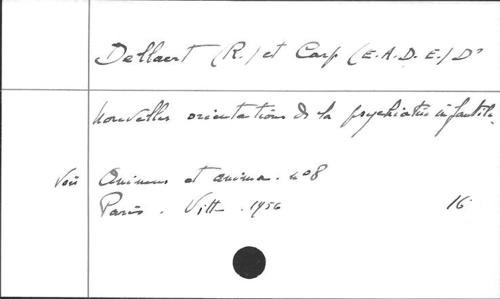 Dellaert (R.) et Carp (E.A.D.E.) Dr
Nouvelles orientations de la psychiatrie infantile.
Voir Animus et anima. n°8
Paris. Vitte. 1956 16